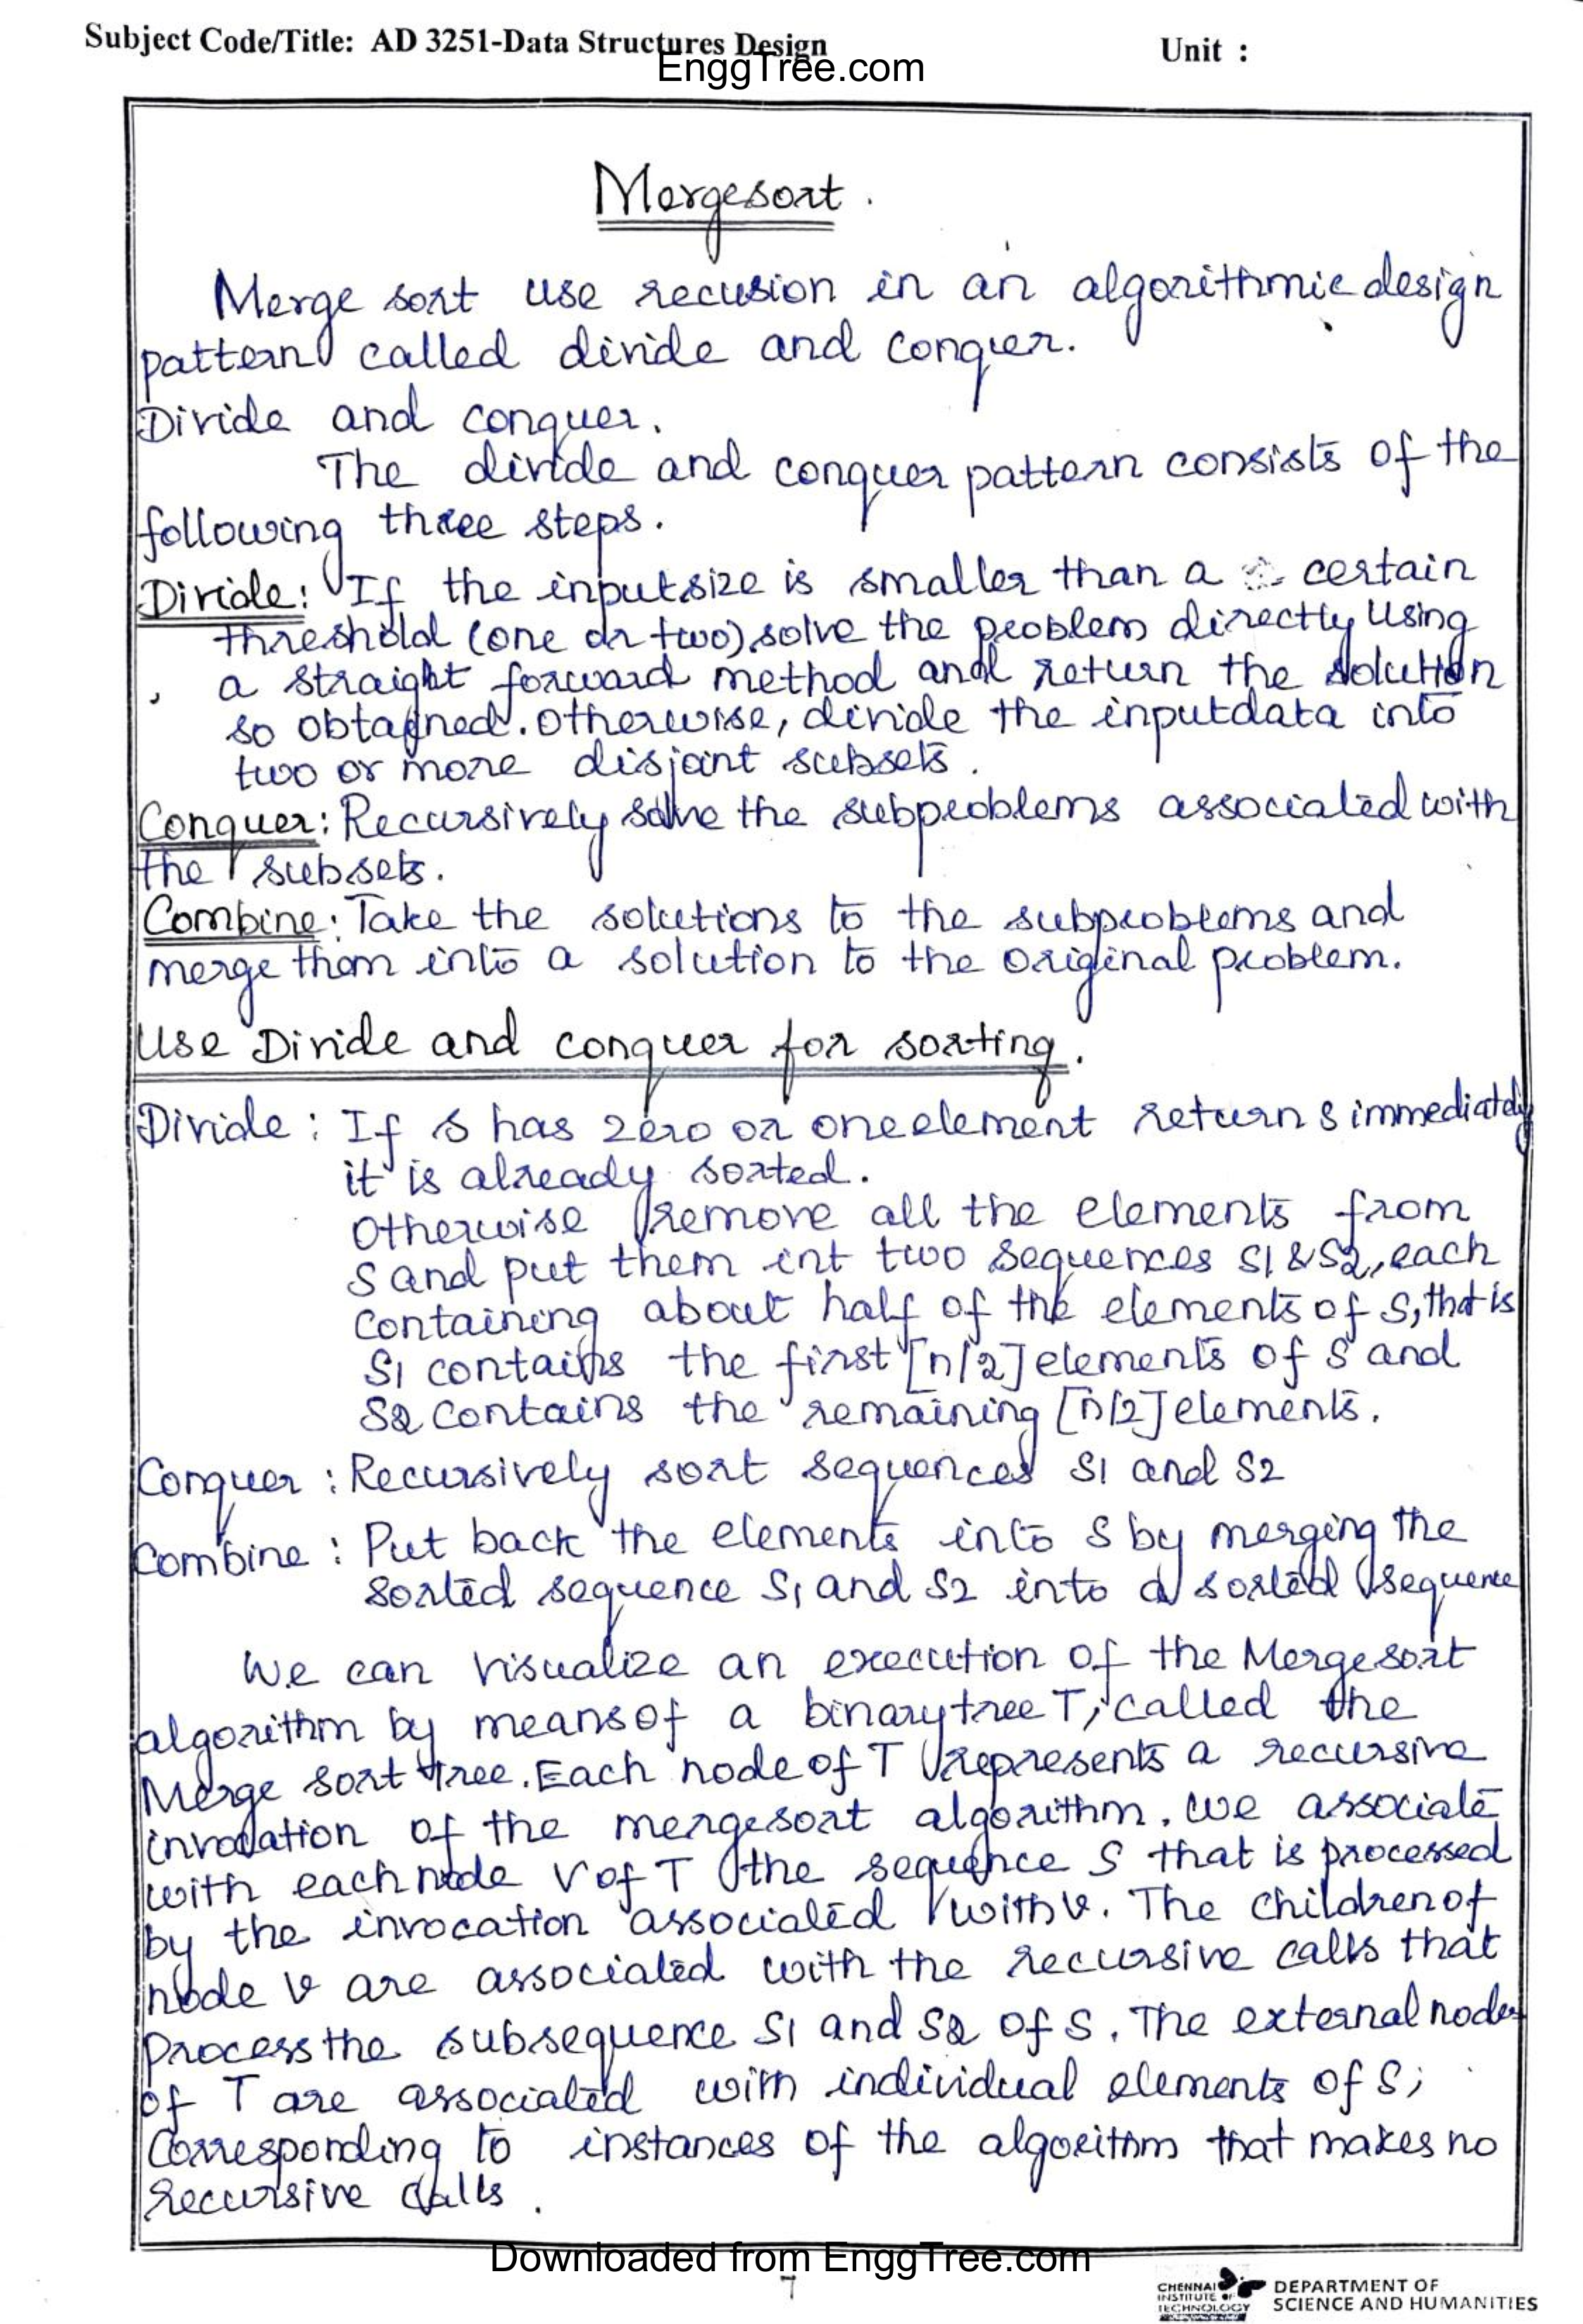 Subject Code/Title: AD 3251-Data Structures Design
Unit :
EnggTree.com
Mergesort.
Merge sort use recusion in an algorithmic design
pattern called divide and conquer.
Divide and conquer.
The divide and conquer pattern consists of the
following three steps.
Divide: If the input size is smaller than a certain
threshold (one or two) solve the problem directly using
a straight forward method and return the solution
so obtained. Otherwise, divide the inputdata into
two or more disjoint subsets.
Conquer: Recursively solve the subproblems associated with
the subsets.
Combine: Take the solutions to the subproblems and
merge them into a solution to the original problem.
Use Divide and conquer for sorting.
Divide : If S has zero or one element return S immediately
it is already sorted.
Otherwise remove all the elements from
S and put them int two sequences S1 & S2, each
containing about half of the elements of S, that is
S1 contains the first [n/2] elements of S and
S2 contains the remaining [n/2] elements.
Conquer : Recursively sort sequences S1 and S2
Combine : Put back the elements into S by merging the
sorted sequence S1 and S2 into a sorted sequence
We can visualize an execution of the Mergesort
algorithm by means of a binary tree T, called the
Merge sort tree. Each node of T represents a recursive
invocation of the mergesort algorithm. We associate
with each node V of T the sequence S that is processed
by the invocation associated with v. The children of
node v are associated with the recursive calls that
process the subsequence S1 and S2 of S. The external nodes
of T are associated with individual elements of S;
Corresponding to instances of the algorithm that makes no
recursive calls.
Downloaded from EnggTree.com
7
CHENNAI
INSTITUTE OF
TECHNOLOGY
DEPARTMENT OF
SCIENCE AND HUMANITIES